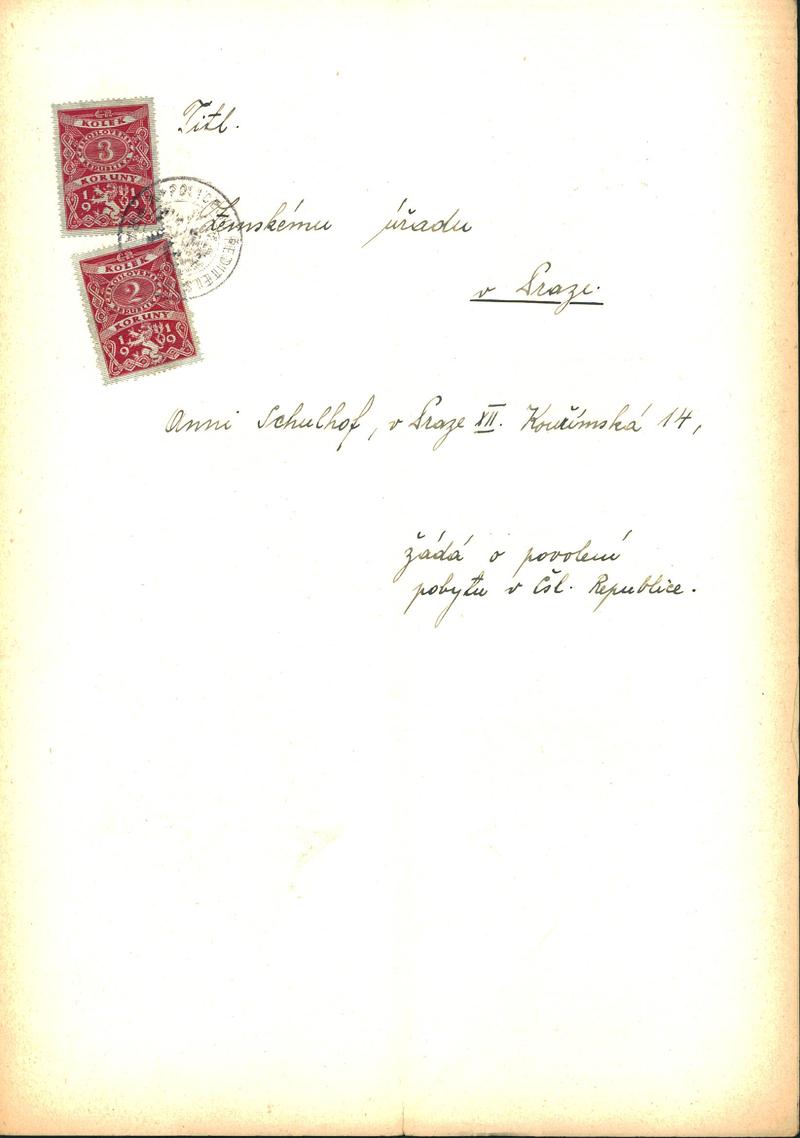 KOLEK
ČESKOSLOVENSKÁ
3
REPUBLIKA
KORUNY
1919
KOLEK
ČESKOSLOVENSKÁ
2
REPUBLIKA
KORUNY
1919
Titl.
Zemskému úřadu
v Praze.
Anni Schulhof, v Praze XII. Kouřimská 14,
žádá o povolení
pobytu v Čsl. Republice.